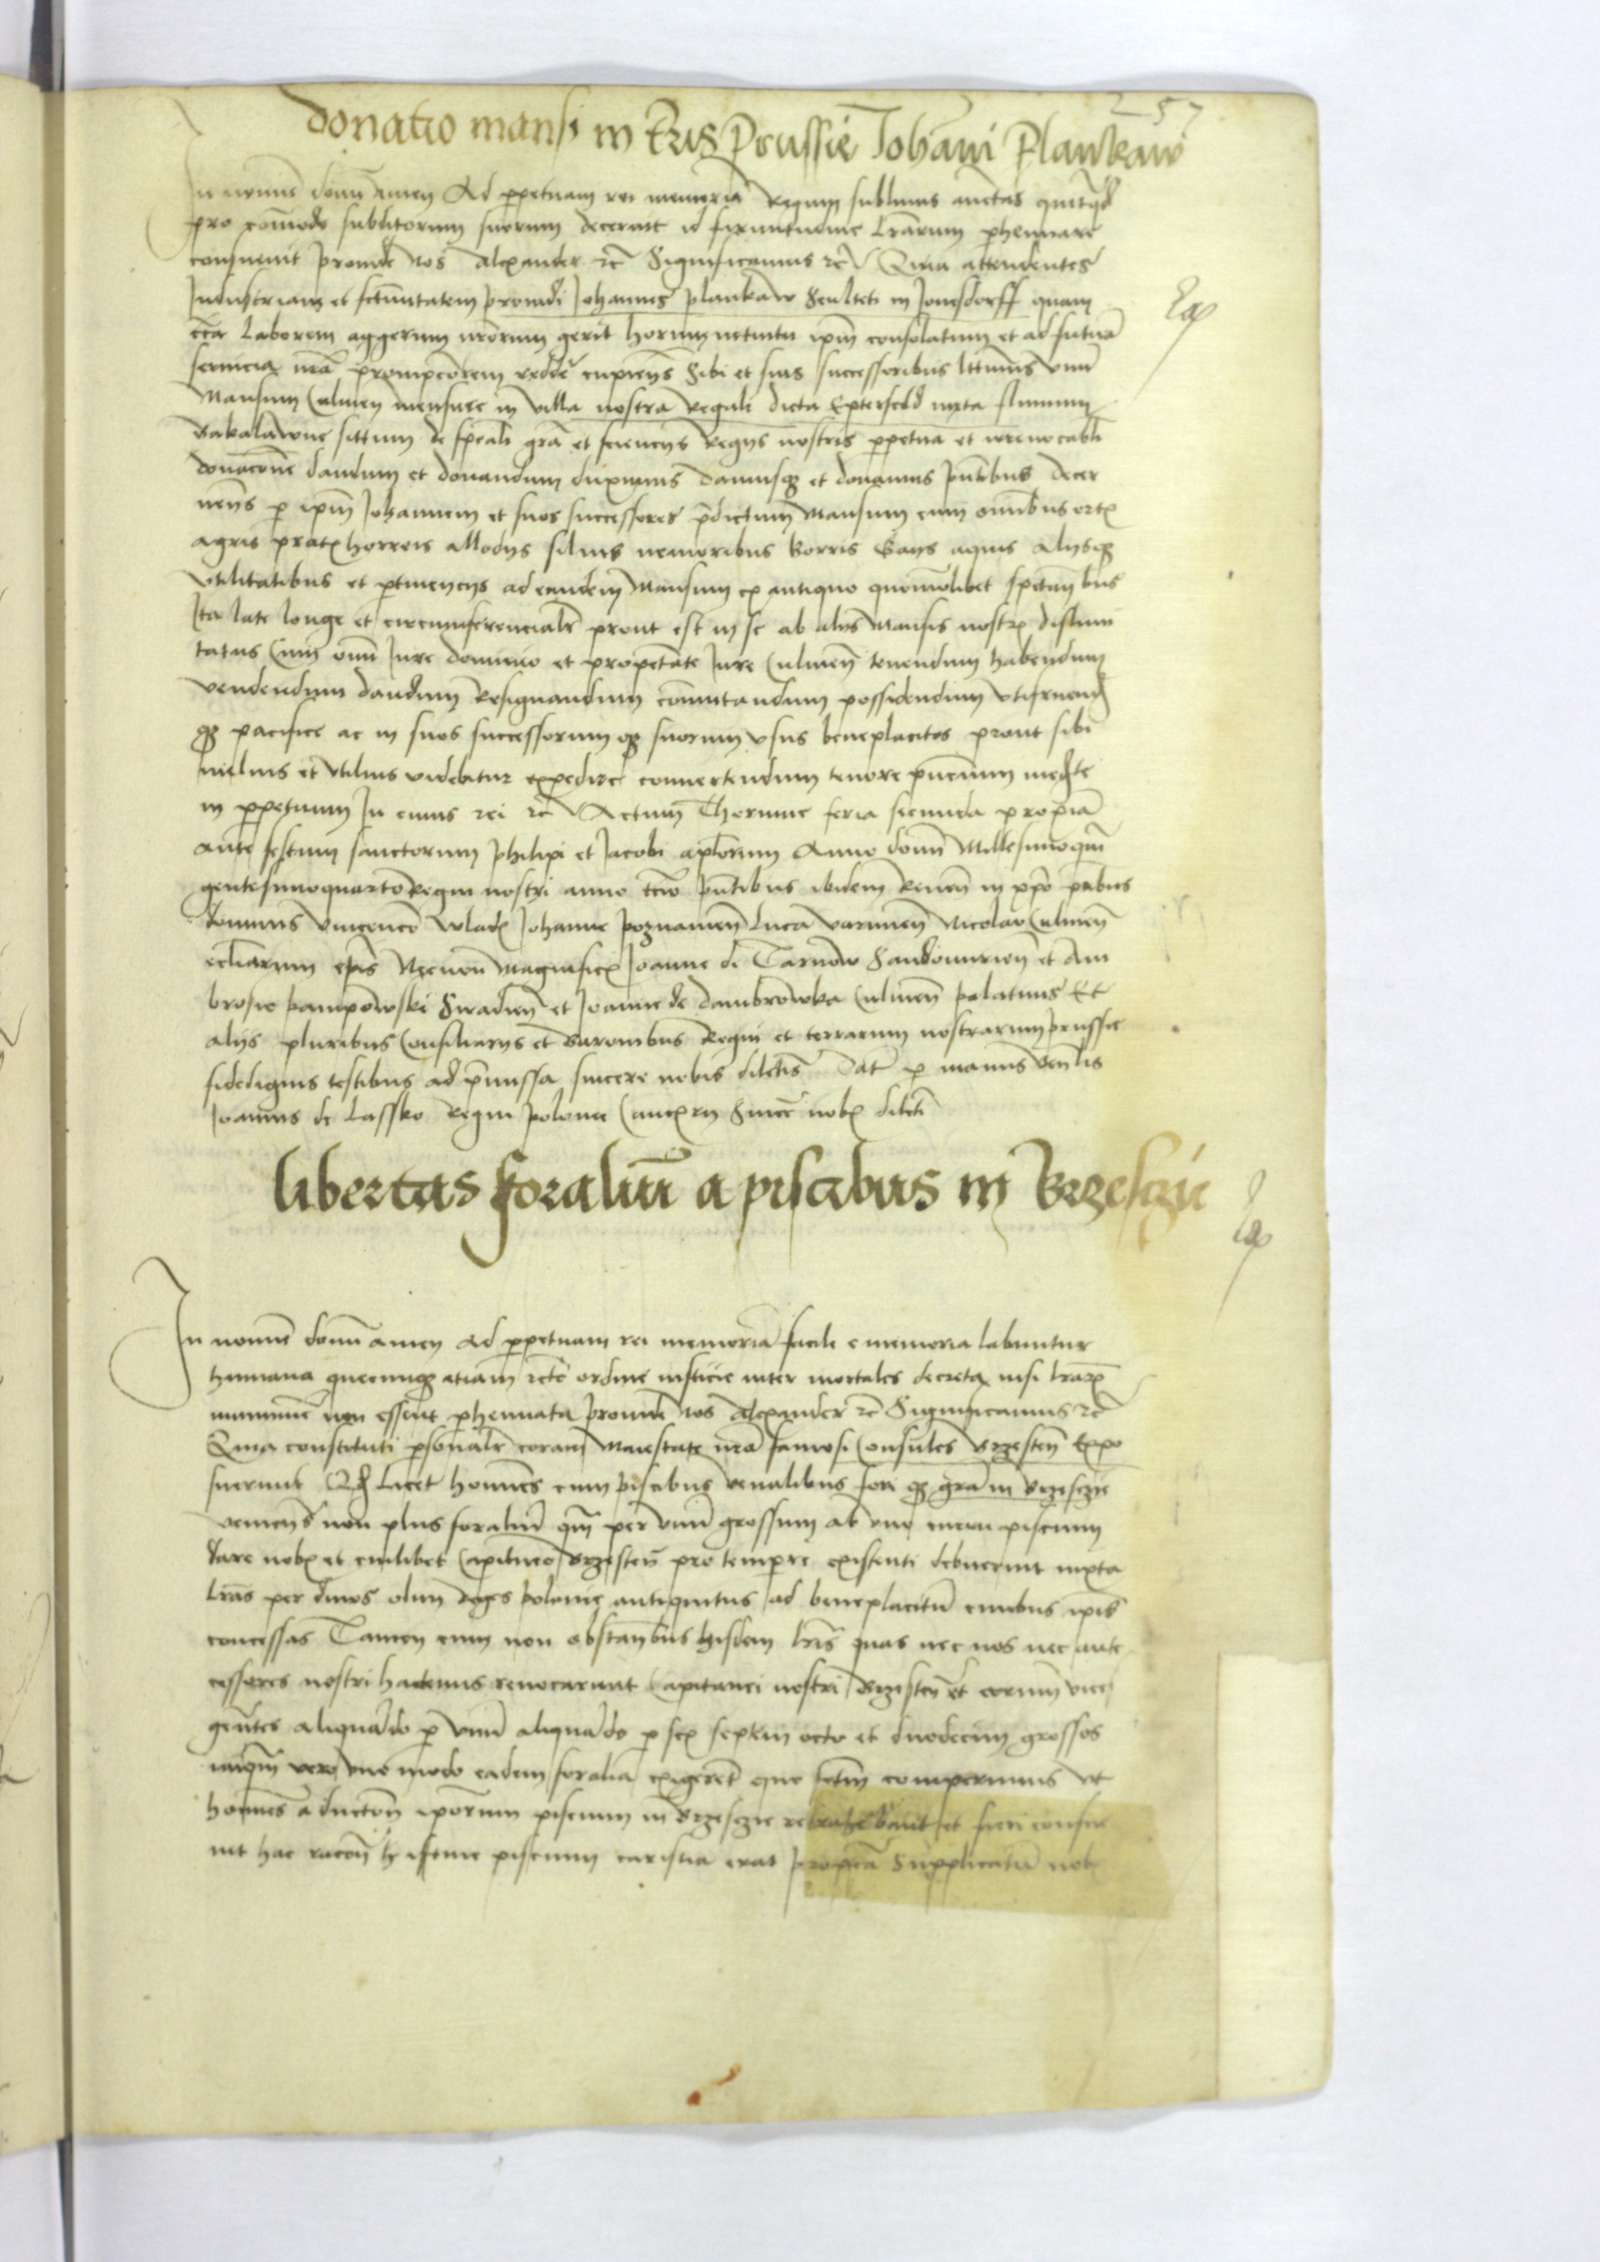 257
Donatio mansi in t̄ris Prussie Joha̅ni Plankaw
In nomi̅e domi̅ amen Ad p̲petuam rei memoria̅ Regum sublimis auctas quitq̲d
pro co̅modo subditorum suorum decerait id firmitudine l̅rarum p̲hennare
consuevit Proinde Nos Alexander ⁊c̅ Significamus ⁊c̅ Quia attendentes
Industriam et Johannes Plankaw Sculteti in Jonesdorff quam
c̅ca Laborem aggerum n̅rorum gerit horum intuitu ip̅m consolatum et ad futura̅
servicia n̅ra prompc̅orem redde̅ cupien̅s Sibi et suis successoribus l̅ttimis unu̅
Mansum Culmen̅ mensure in villa nostra Regali dicta Epterfeld iuxta flumum
Babalawne sittum de sp̅eali gr̅a et sciencys Regys nostris p̲petua et irrevocab̅li
donac̅one dandum et donandum duximus Damusq̲ et donamus p̅ntibus Decer
nen̅s p̲ ip̅m Johannem et suos successores p̅dictum Mansum cum om̅ibus ort̲
agris prat̲ horreis allodys silvis nemoribus borris Gays aquis alysq̲
utilitatibus et p̲tinencys ad eundem Mansum ex antiquo quomo̅libet sp̅ctan̅bus
Ita late longe et circumferencialr̅ prout est in se ab alys Mansis nostr̲ dislimi
tatus Cum om̅i Jure dominio et propr̅etate Jure Culmen̅ tenendum habendum
vendendum dandum Resignandum co̅mutandum possidendum utifruend̲
q̲ pacifice ac in suos successorum q̲ suorum usus beneplacitos prout sibi
melius et utilius videbitur expedire convertendum tenore p̅ncium med̲te
in p̲petuum In cuius rei ⁊c̅ Actum Thorunie feria secunda p̲ropi̅a
ante festum sanctorum Philipi et Jacobi ap̅lorum Anno domi̅ Millesimoqui̅
gentesimoquarto Regni nostri anno tc̅io p̅ntibus ibidem Reven̅ in xp̅o p̅ribus
dominis Vincenc̅o Wlad̲ Johanne Poznanien̅ Luca Varmien̅ Nicolao Culmen̅
eccl̅iarum ep̅is Necnon Magnific̲ Joanne de Tarnow Sandomirien̅ et Am
brosio Pampowski Siradien̅ et Joanne de Dambrowka Culmen̅ palatinis Et
alys pluribus Consiliarys et Baronibus Regni et terrarum nostrarum Prussie
fidedignis testibus ad p̅missa sincere nobis dil̅ctis Dat̅ p̲ manus Ven̅lis
Joannis de Lassko Regni Polonie Canc̲ry Since̅ nob̲ dil̅cti
libertas foraliu̅ a piscibus in Brzesczie
In nomi̅e domi̅ amen Ad p̲petuam rei memoria̅ facile e memoria labuntur
humana quecumq̲ etiam r̅cto ordine iusticie inter mortales decreta nisi l̅rar̲
munimi̅e non essent p̲hennata Proinde Nos Alexander ⁊c̅ Significamus ⁊c̅
Quia constituti p̲sonalr̅ coram Maiestate n̅ra famosi Consules Brzesten̅ Expo
suerunt Q̲d Licet homi̅es cum piscibus venalibus fori q̲ gr̅a in Brzesczie
venien̅s non plus foraliu̅ q̲m per unu̅ grossum ab uno curru piscium
dare nob̲ et cuilibet Capitaneo Brzesten̅ pro tempore existenti debuerint iuxta
l̅ras per divos olim Reges Polonie antiquitus ad beneplacitu̅ civibus ip̅is
concessas Tamen cum non obstan̅bus hisdem l̅ris quas nec nos nec ante
cessores nostri hactenus revocarunt Capitanei nostri Brzesten̅ et eorum vices
geren̅tes aliquando p̲ unu̅ aliquando p̲ sex septem octo et duodecim grossos
nu̅q̲m vero uno modo eadem foralia exigere̅t quo f̅ctm̅ comperimus ut
homi̅es a ducton̅ ip̅orum piscium in Brzesczie retrahebant et fieri consue
vit hac rac̅on̅ h̲ istine piscium caristia erat Propt̅ea Supplicatu̅ nob̲